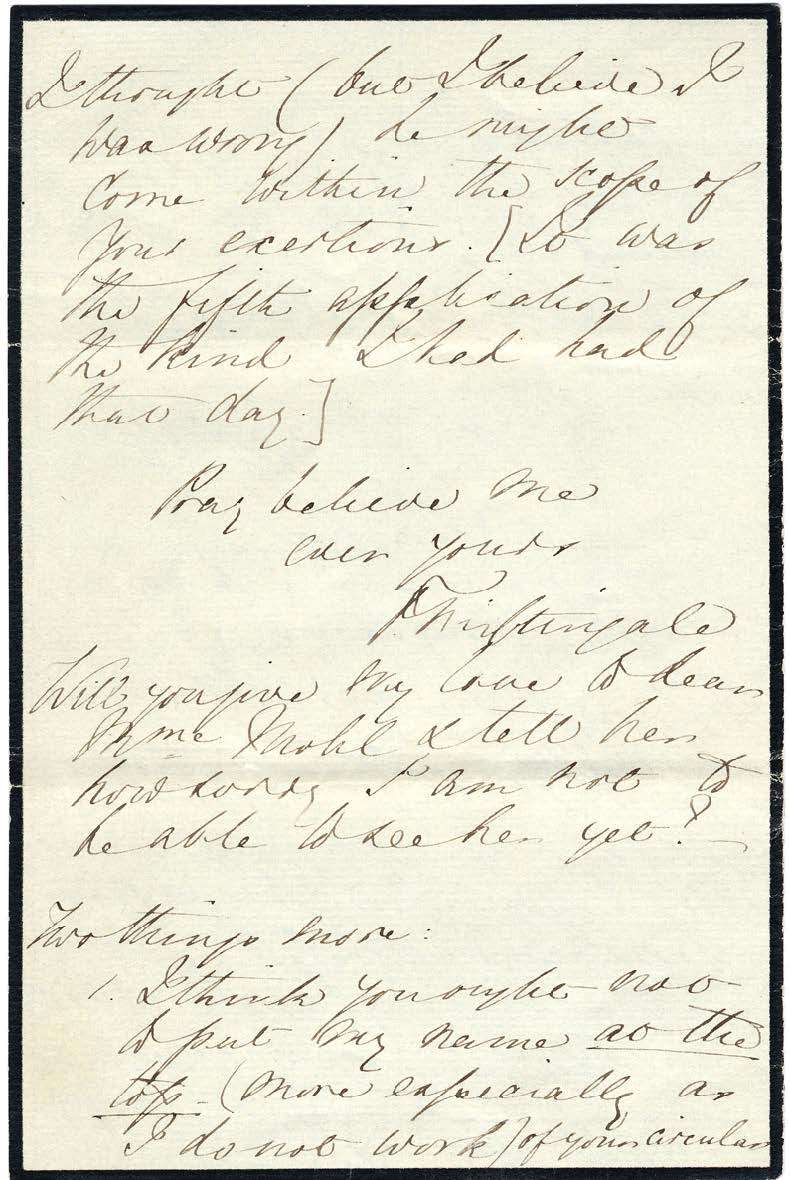 I thought (but I believe I
was wrong) he might
come within the scope of
your exertions. [It was
the fifth application of
the kind I had had
that day.]
Pray believe me
ever yours
F Nightingale
Will you give my love to dear
Mme Mohl & tell her
how sorry I am not to
be able to see her yet?
Two things more:
1. I think you ought not
to put my name at the
top - (more especially as
I do not work) of your circular